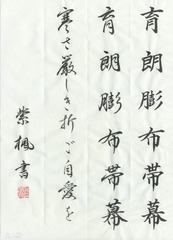 育朗膨布帯幕
育朗膨布帯幕
寒さ厳しき折ご自愛を
紫楓書